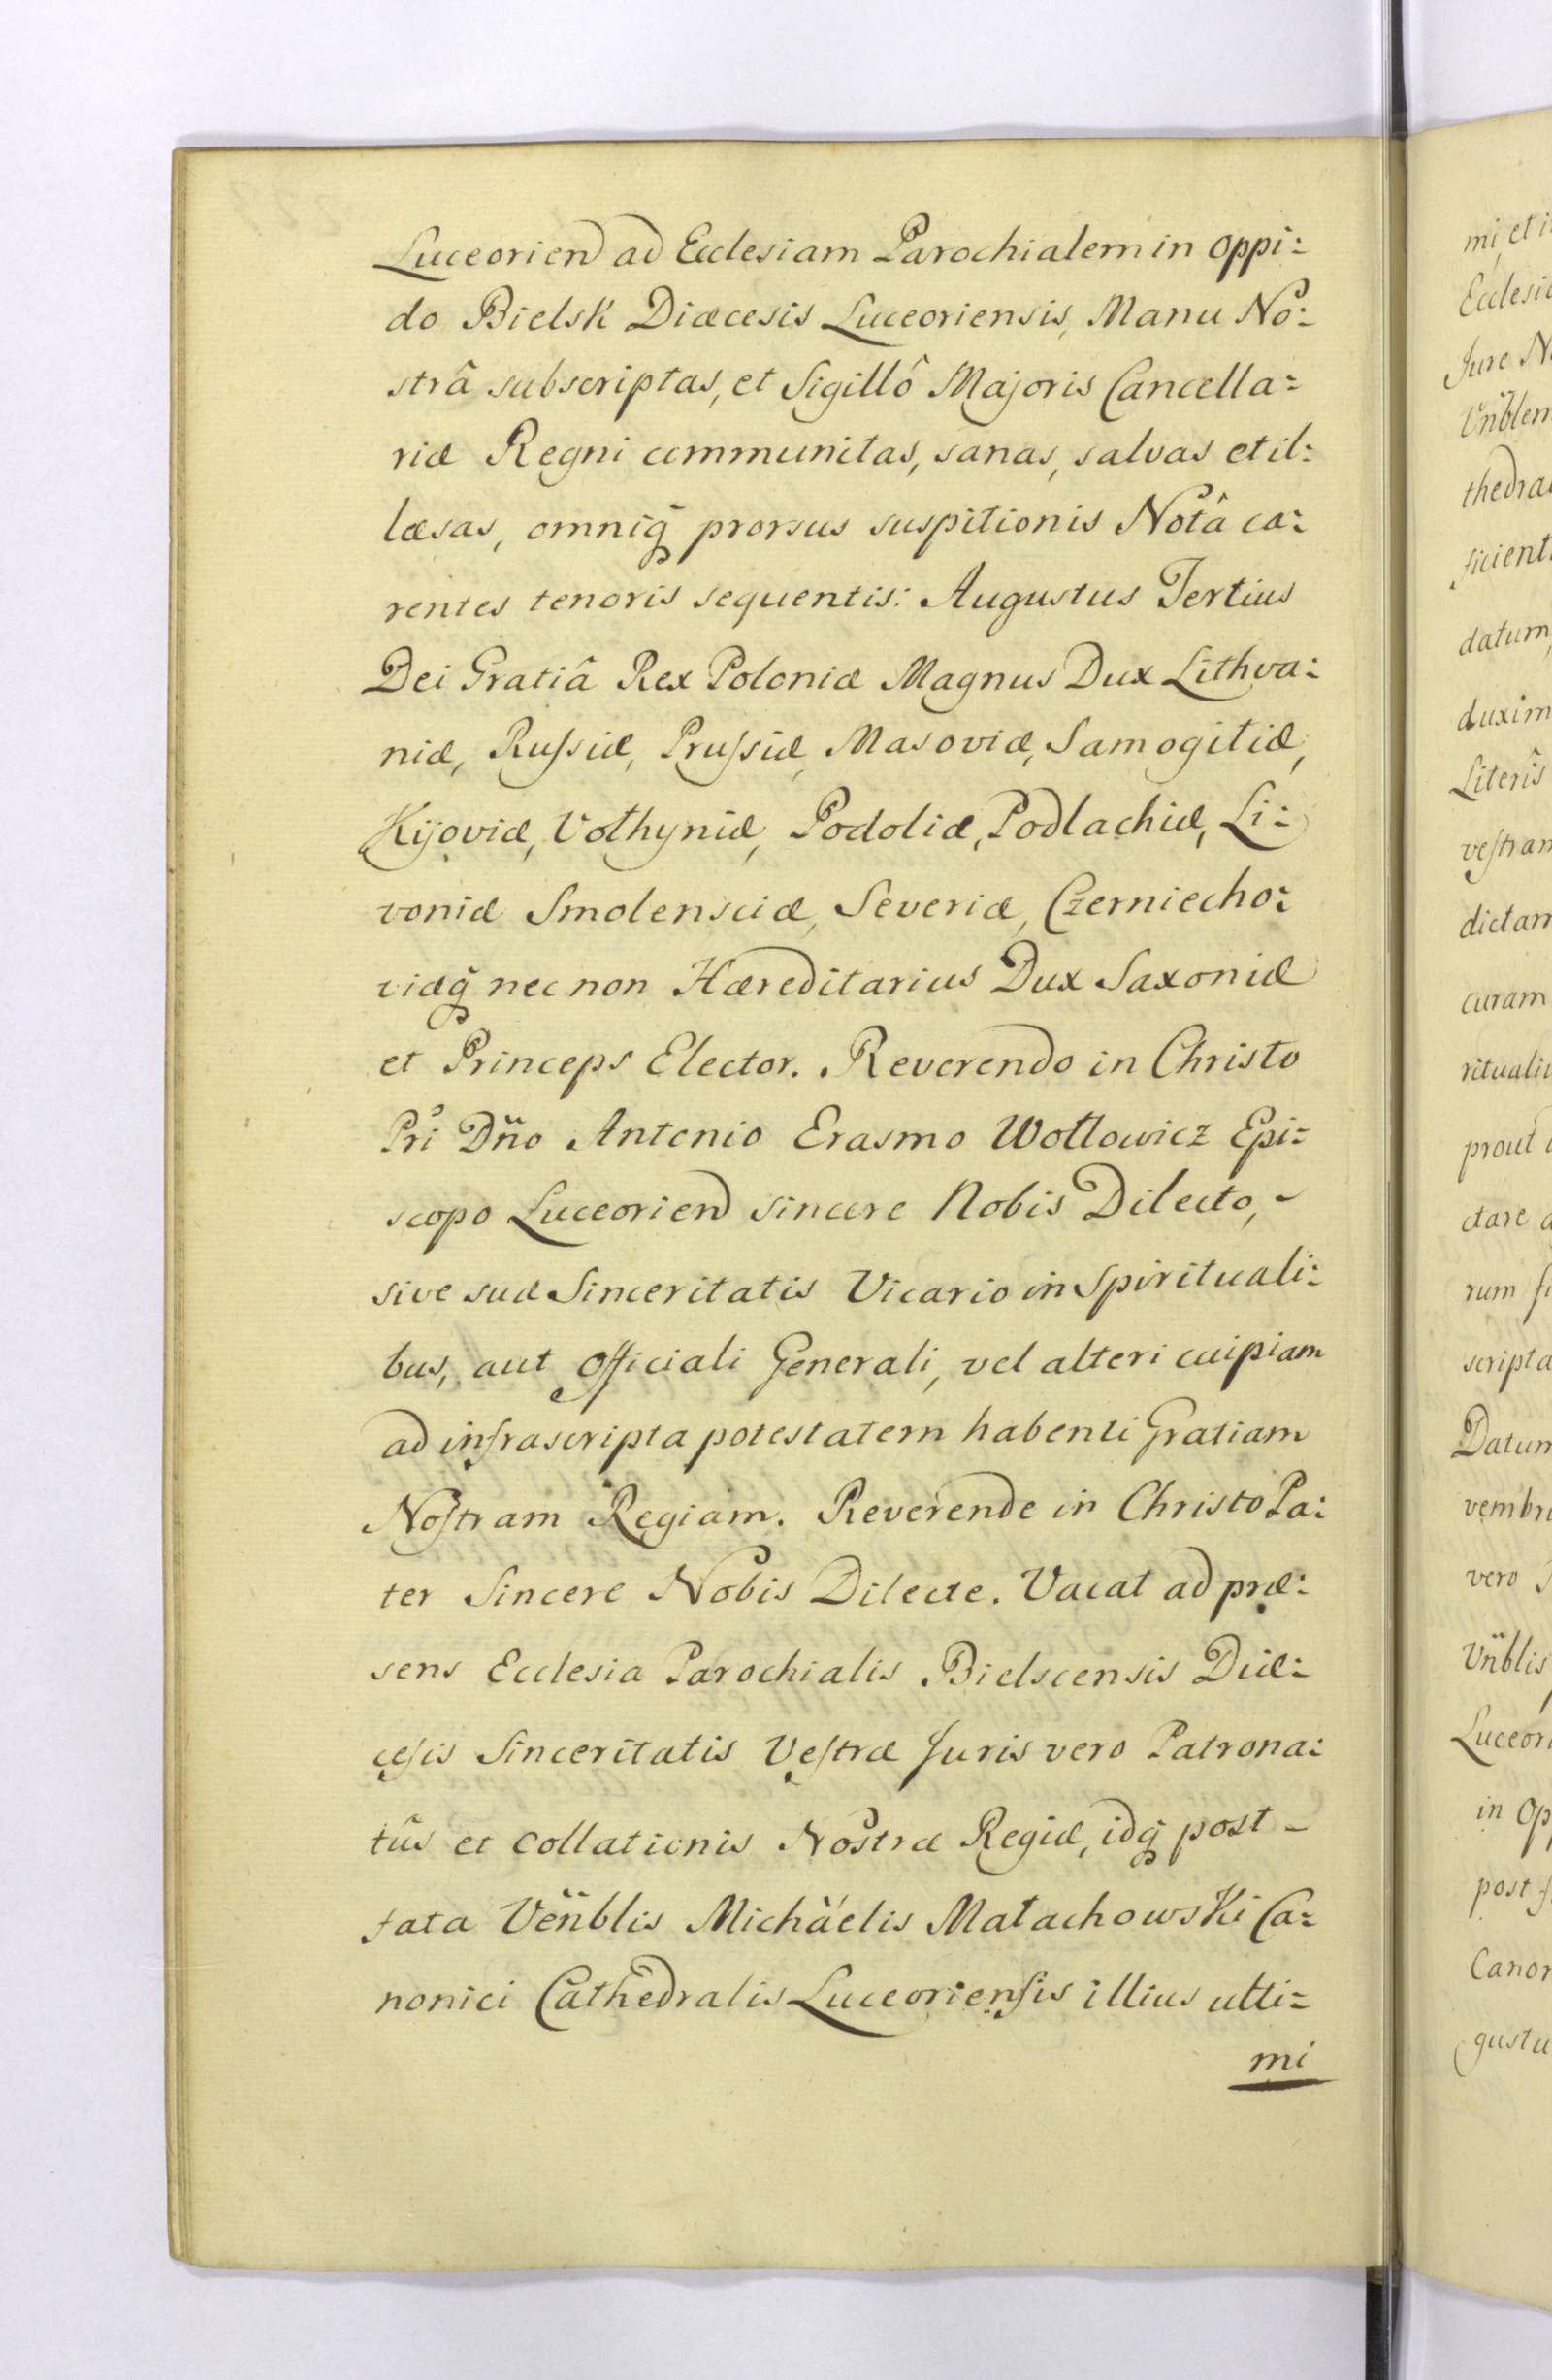 Luceorien ad Ecclesiam Parochialem in Oppi:
do Bielsk Diæcesis Luceoriensis, Manu No:
strâ subscriptas, et Sigillô Majoris Cancella:
riæ Regni communitas, sanas, salvas et il:
læsas, omniq̃ prorsus suspitionis Notâ ca:
rentes tenoris sequentis: Augustus Tertius
Dei Gratiâ Rex Poloniæ Magnus Dux Lithva:
niæ, Ruſsiæ, Pruſsiæ, Masoviæ, Samogitiæ,
Kijoviæ, Vołhyniæ, Podoliæ, Podlachiæ, Li:
voniæ Smolensciæ, Severiæ, Czerniecho:
viæq̃ nec non Hæreditarius Dux Saxoniæ
et Princeps Elector. Reverendo in Christo
Pri Dño Antonio Erasmo Wołłowicz Epi:
scopo Luceorien sincere Nobis Dilecto, -
sive suæ Sinceritatis Vicario in Spirituali:
bus, aut Officiali Generali, vel alteri cuipiam
ad infrascripta potestatem habenti Gratiam
Noſtram Regiam. Reverende in Christo Pa:
ter Sincere Nobis Dilecte. Vacat ad præ:
sens Ecclesia Parochialis Bielscensis Diæ:
ceſis Sinceritatis Veſtræ Juris vero Patrona:
tûs et Collationis Nostræ Regiæ, idq̃ post -
fata Vёnblis Michaelis Małachowski Ca:
nonici Cathedralis Luceorienſis illius ulti:
mi
mi et i
Ecclesi
Jure N
Vnblem
thedra
ficient
datum,
duxim
Literis
veſtram
dictam
curam
rituali
prout
ctare a
rum
scripta
Datum
vembr
vero
Vnblis
Luceor
in Op
post
Canon
gustu